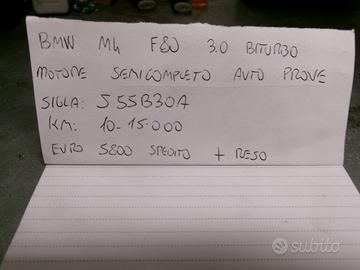 BMW M4 F80 3.0 BITURBO
MOTORE SEMICOMPLETO AUTO PROVE
SIGLA: S55B30A
KM: 10-15.000
EURO 5800 SPEDITO + RESO
subito